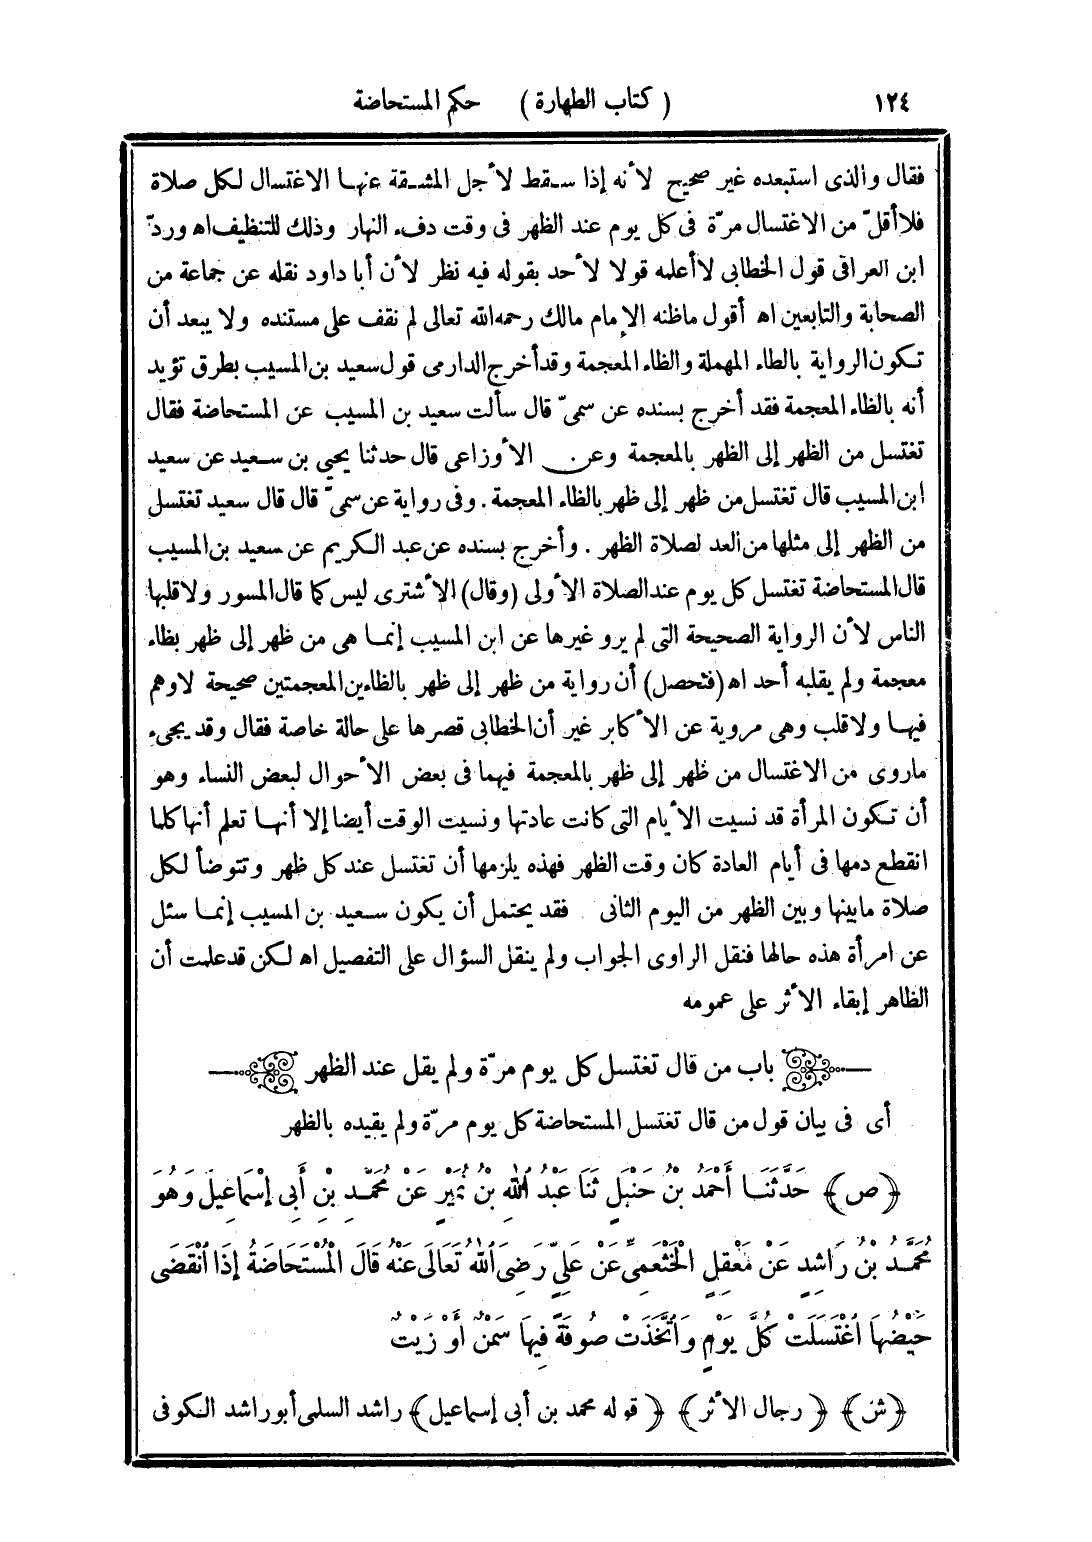 ١٢٤ ( كتاب الطهارة ) حكم المستحاضة
فقال والذى استبعده غير صحيح لأنه إذا سقط لأجل المشقة عنها الاغتسال لكل صلاة
فلا أقلّ من الاغتسال مرّة فى كل يوم عند الظهر فى وقت دفء النهار وذلك للتنظيف اه وردّ
ابن العراقى قول الخطابى لا أعلمه قولا لأحد بقوله فيه نظر لأن أبا داود نقله عن جماعة من
الصحابة والتابعين اه أقول ماظنه الإمام مالك رحمه الله تعالى لم نقف على مستنده ولا يبعد أن
تكون الرواية بالطاء المهملة والظاء المعجمة وقد أخرج الدارمى قول سعيد بن المسيب بطرق تؤيد
أنه بالظاء المعجمة فقد أخرج بسنده عن سمىّ قال سألت سعيد بن المسيب عن المستحاضة فقال
تغتسل من الظهر إلى الظهر بالمعجمة وعن الأوزاعى قال حدثنا يحيى بن سعيد عن سعيد
ابن المسيب قال تغتسل من ظهر إلى ظهر بالظاء المعجمة . وفى رواية عن سمىّ قال قال سعيد تغتسل
من الظهر إلى مثلها من الغد لصلاة الظهر . وأخرج بسنده عن عبد الكريم عن سعيد بن المسيب
قال المستحاضة تغتسل كل يوم عند الصلاة الأولى (وقال) الأشترى ليس كما قال المسور ولا قلبها
الناس لأن الرواية الصحيحة التى لم يرو غيرها عن ابن المسيب إنما هى من ظهر إلى ظهر بظاء
معجمة ولم يقلبه أحد اه (فتحصل) أن رواية من ظهر إلى ظهر بالظاءين المعجمتين صحيحة لاوهم
فيها ولا قلب وهى مروية عن الأكابر غير أن الخطابى قصرها على حالة خاصة فقال وقد يجىء
ماروى من الاغتسال من ظهر إلى ظهر بالمعجمة فيهما فى بعض الأحوال لبعض النساء وهو
أن تكون المرأة قد نسيت الأيام التى كانت عادتها ونسيت الوقت أيضا إلا أنها تعلم أنها كلما
انقطع دمها فى أيام العادة كان وقت الظهر فهذه يلزمها أن تغتسل عند كل ظهر وتتوضأ لكل
صلاة مابينها وبين الظهر من اليوم الثانى فقد يحتمل أن يكون سعيد بن المسيب إنما سئل
عن امرأة هذه حالها فنقل الراوى الجواب ولم ينقل السؤال على التفصيل اه لكن قد علمت أن
الظاهر إبقاء الأثر على عمومه
باب من قال تغتسل كل يوم مرّة ولم يقل عند الظهر
أى فى بيان قول من قال تغتسل المستحاضة كل يوم مرّة ولم يقيده بالظهر
﴿ص﴾ حَدَّثَنَا أَحْمَدُ بْنُ حَنْبَلٍ ثَنَا عَبْدُ اللهِ بْنُ نُمَيْرٍ عَنْ مُحَمَّدِ بْنِ أَبِى إِسْمَاعِيلَ وَهُوَ
مُحَمَّدُ بْنُ رَاشِدٍ عَنْ مَعْقِلٍ الْخَثْعَمِىِّ عَنْ عَلِىٍّ رَضِىَ اللهُ تَعَالَى عَنْهُ قَالَ الْمُسْتَحَاضَةُ إِذَا انْقَضَى
حَيْضُهَا اغْتَسَلَتْ كُلَّ يَوْمٍ وَاتَّخَذَتْ صُوفَةً فِيهَا سَمْنٌ أَوْ زَيْتٌ
﴿ش﴾ ﴿رجال الأثر﴾ ﴿قوله محمد بن أبى إسماعيل﴾ راشد السلمى أبو راشد الكوفى